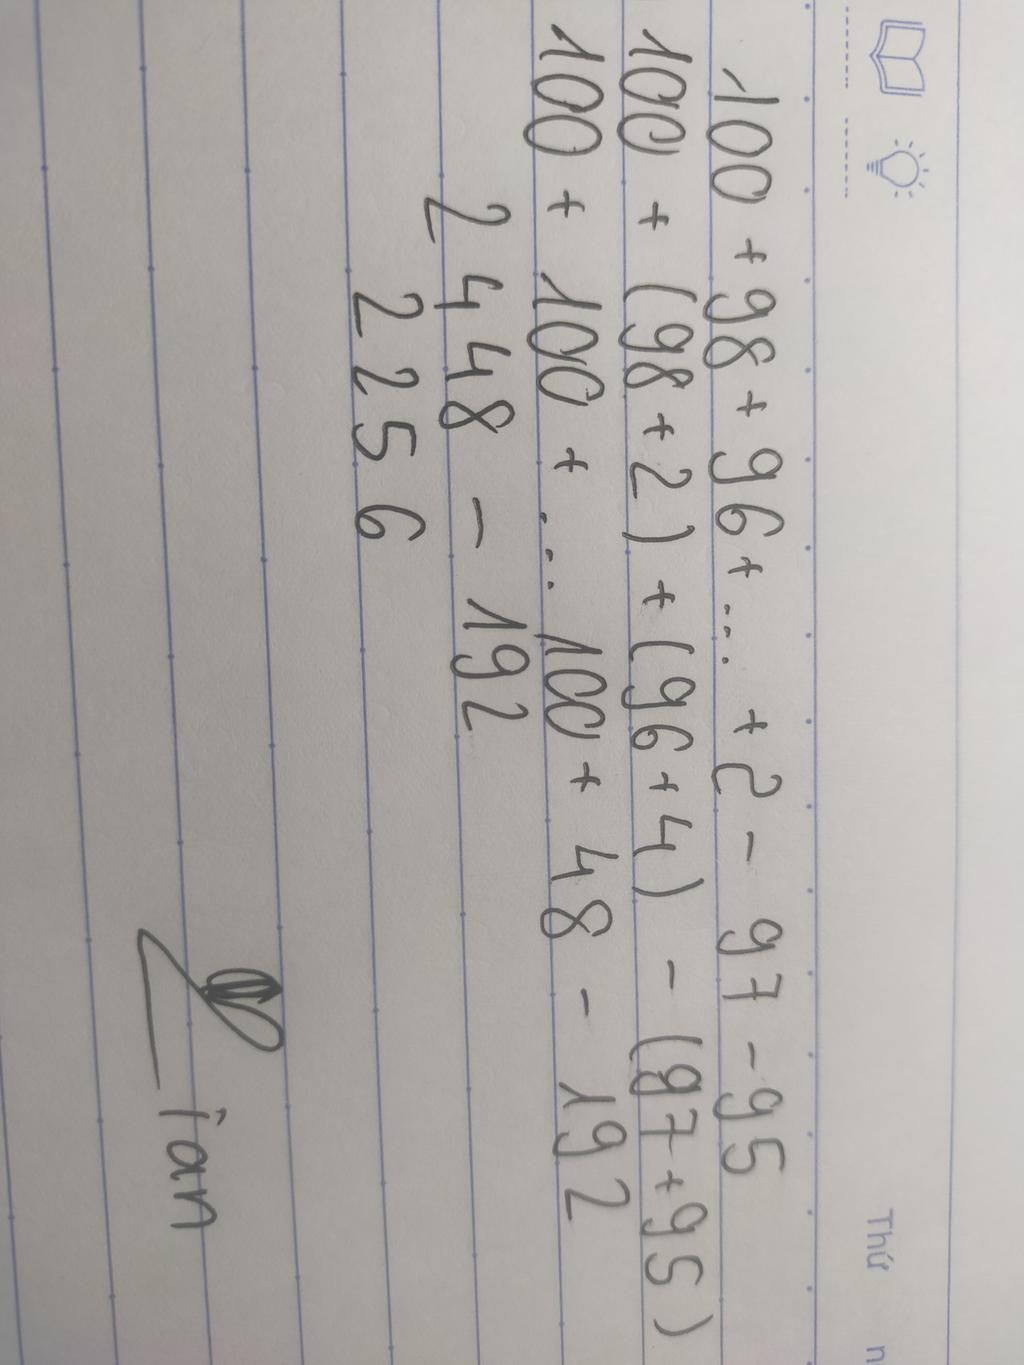 Thứ n
100 + 98 + 96 + ... + 2 - 97 - 95
100 + (98 + 2) + (96 + 4) - (97 + 95)
100 + 100 + ... 100 + 48 - 192
2448 - 192
2256